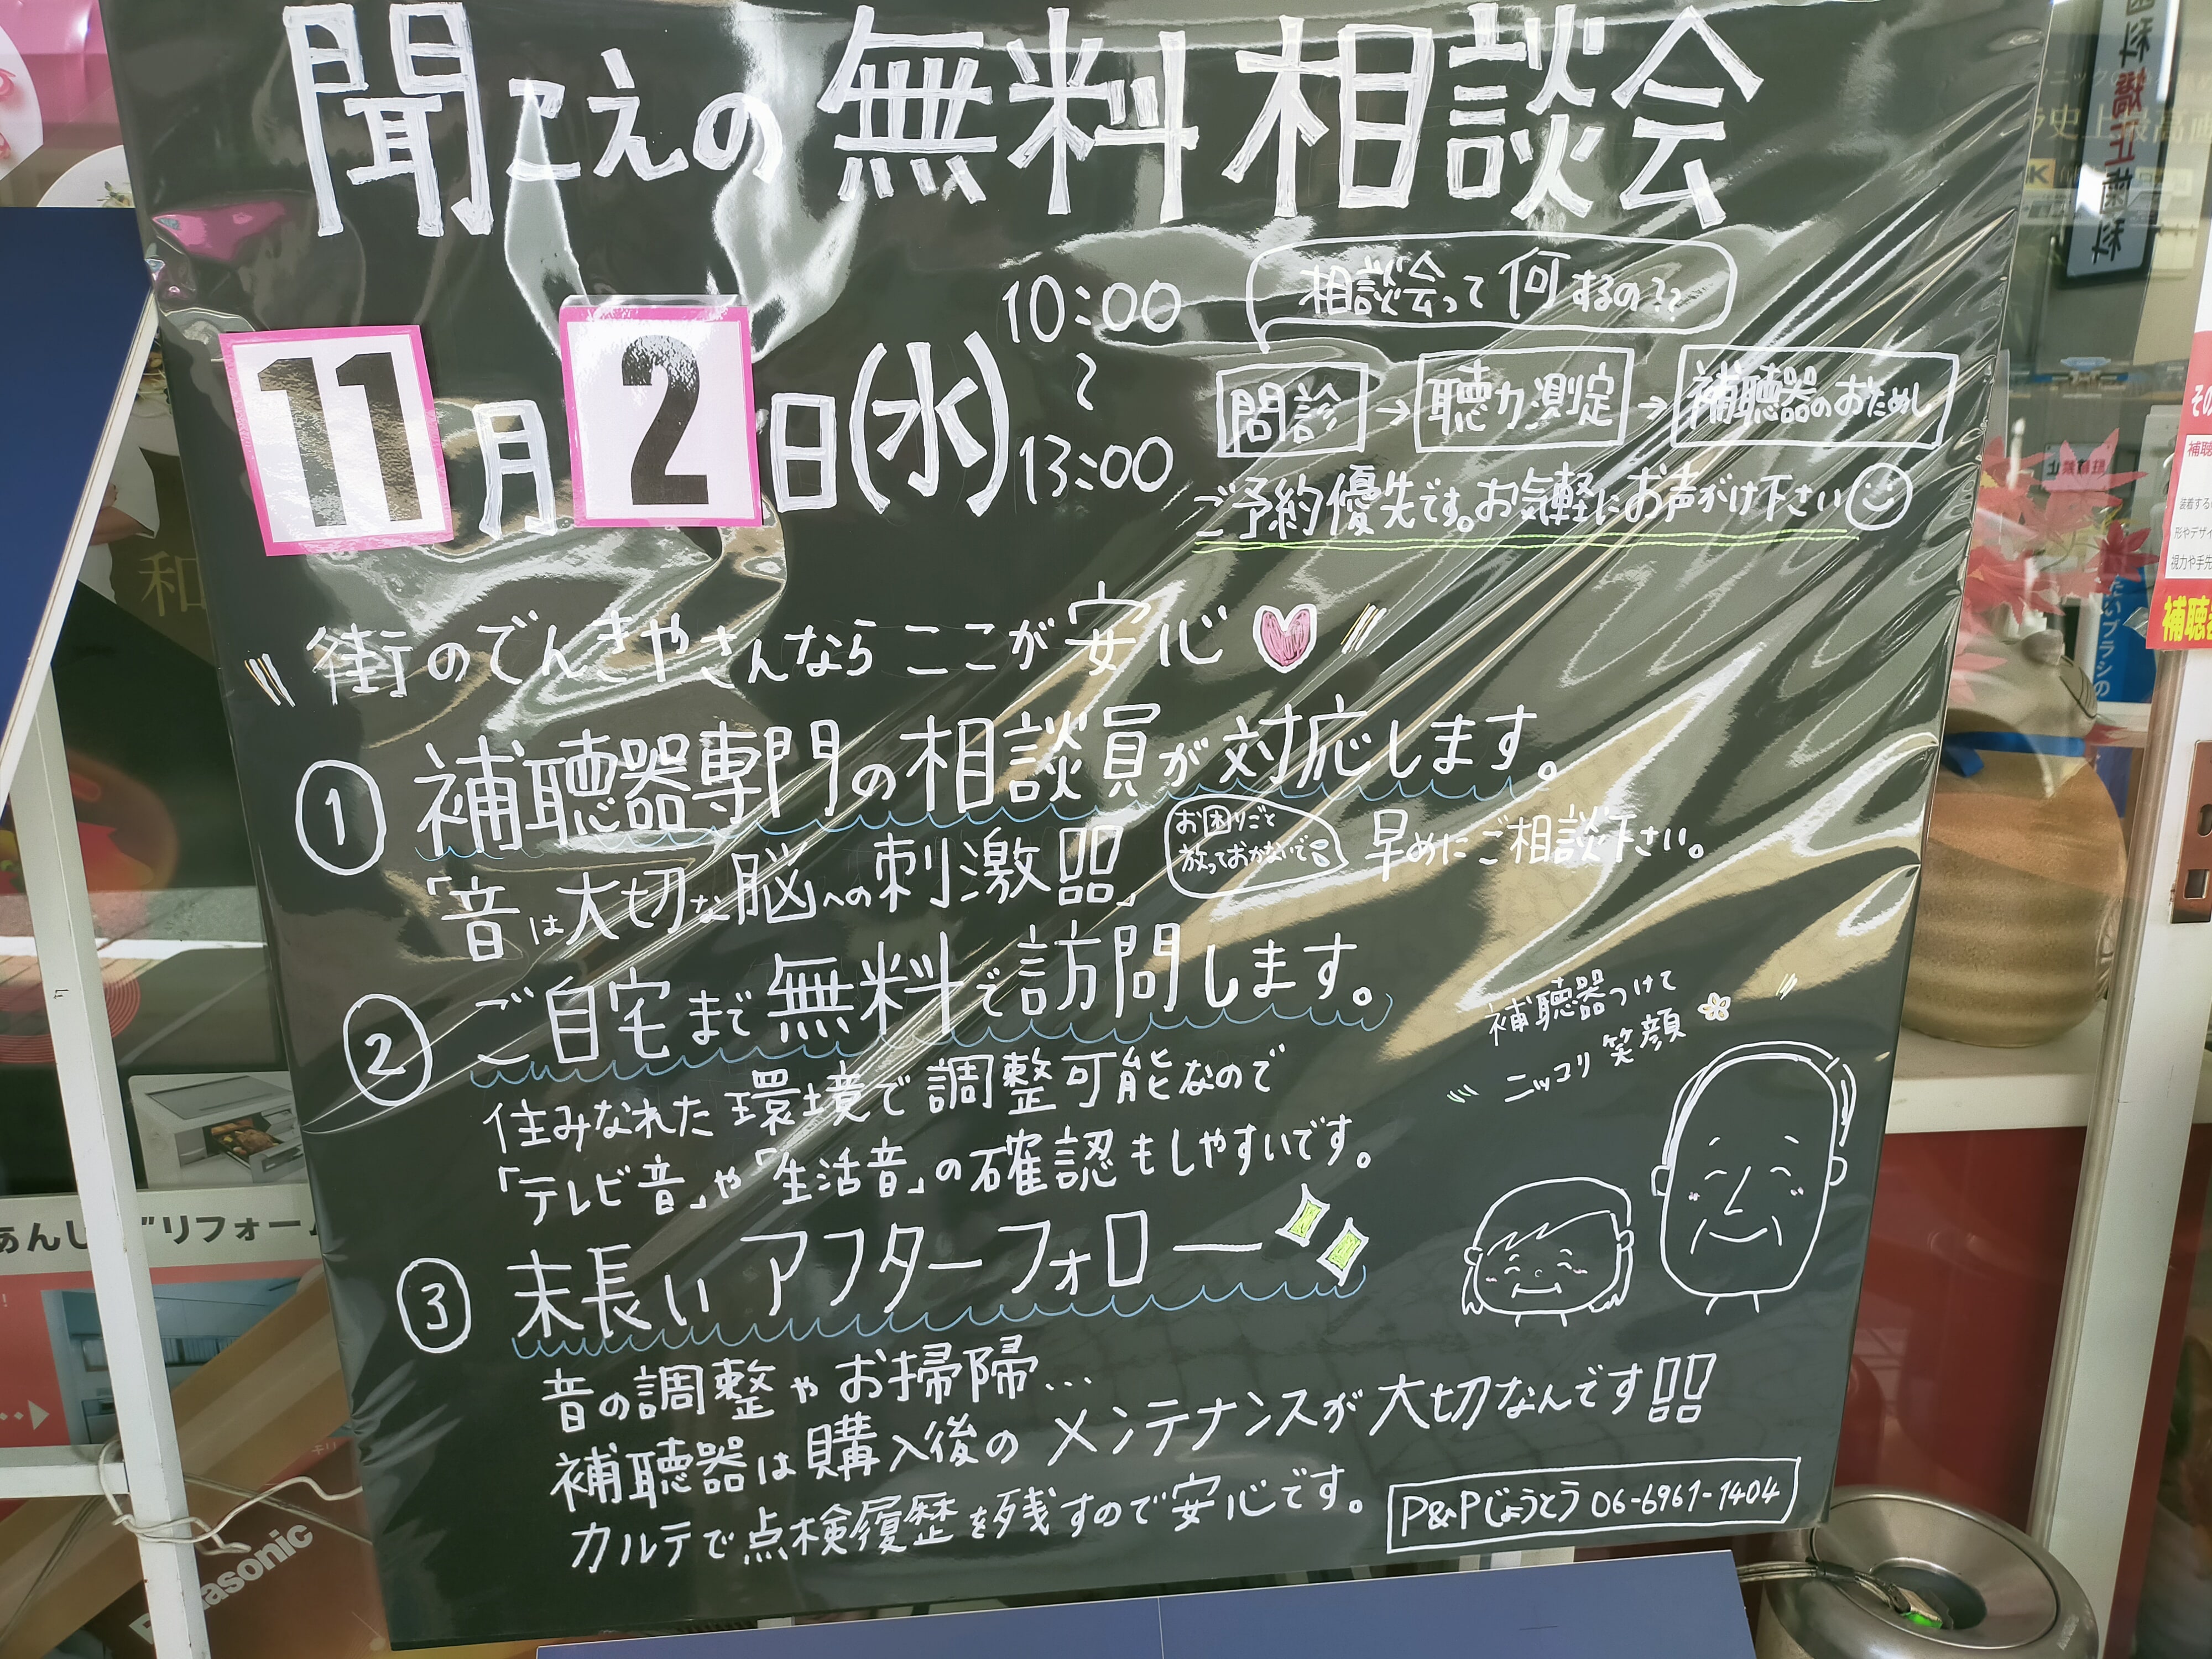 聞こえの無料相談会
11月2日(水)
10:00
〜
13:00
相談会って何するの??
問診→聴力測定→補聴器のおためし
ご予約優先です。お気軽にお声がけ下さい
街のでんきやさんなら ここが安心
① 補聴器専門の相談員が対応します。
「音は大切な脳への刺激!!」
お困りごと
放っておかないで
早めにご相談下さい。
② ご自宅まで無料で訪問します。
住みなれた環境で調整可能なので
「テレビ音」や「生活音」の確認もしやすいです。
補聴器つけて
ニッコリ笑顔
③ 末長いアフターフォロー
音の調整やお掃除...
補聴器は購入後のメンテナンスが大切なんです!!
カルテで点検履歴を残すので安心です。
P&Pじょうとう 06-6961-1404
矯正歯科
和
リフォーム
Panasonic